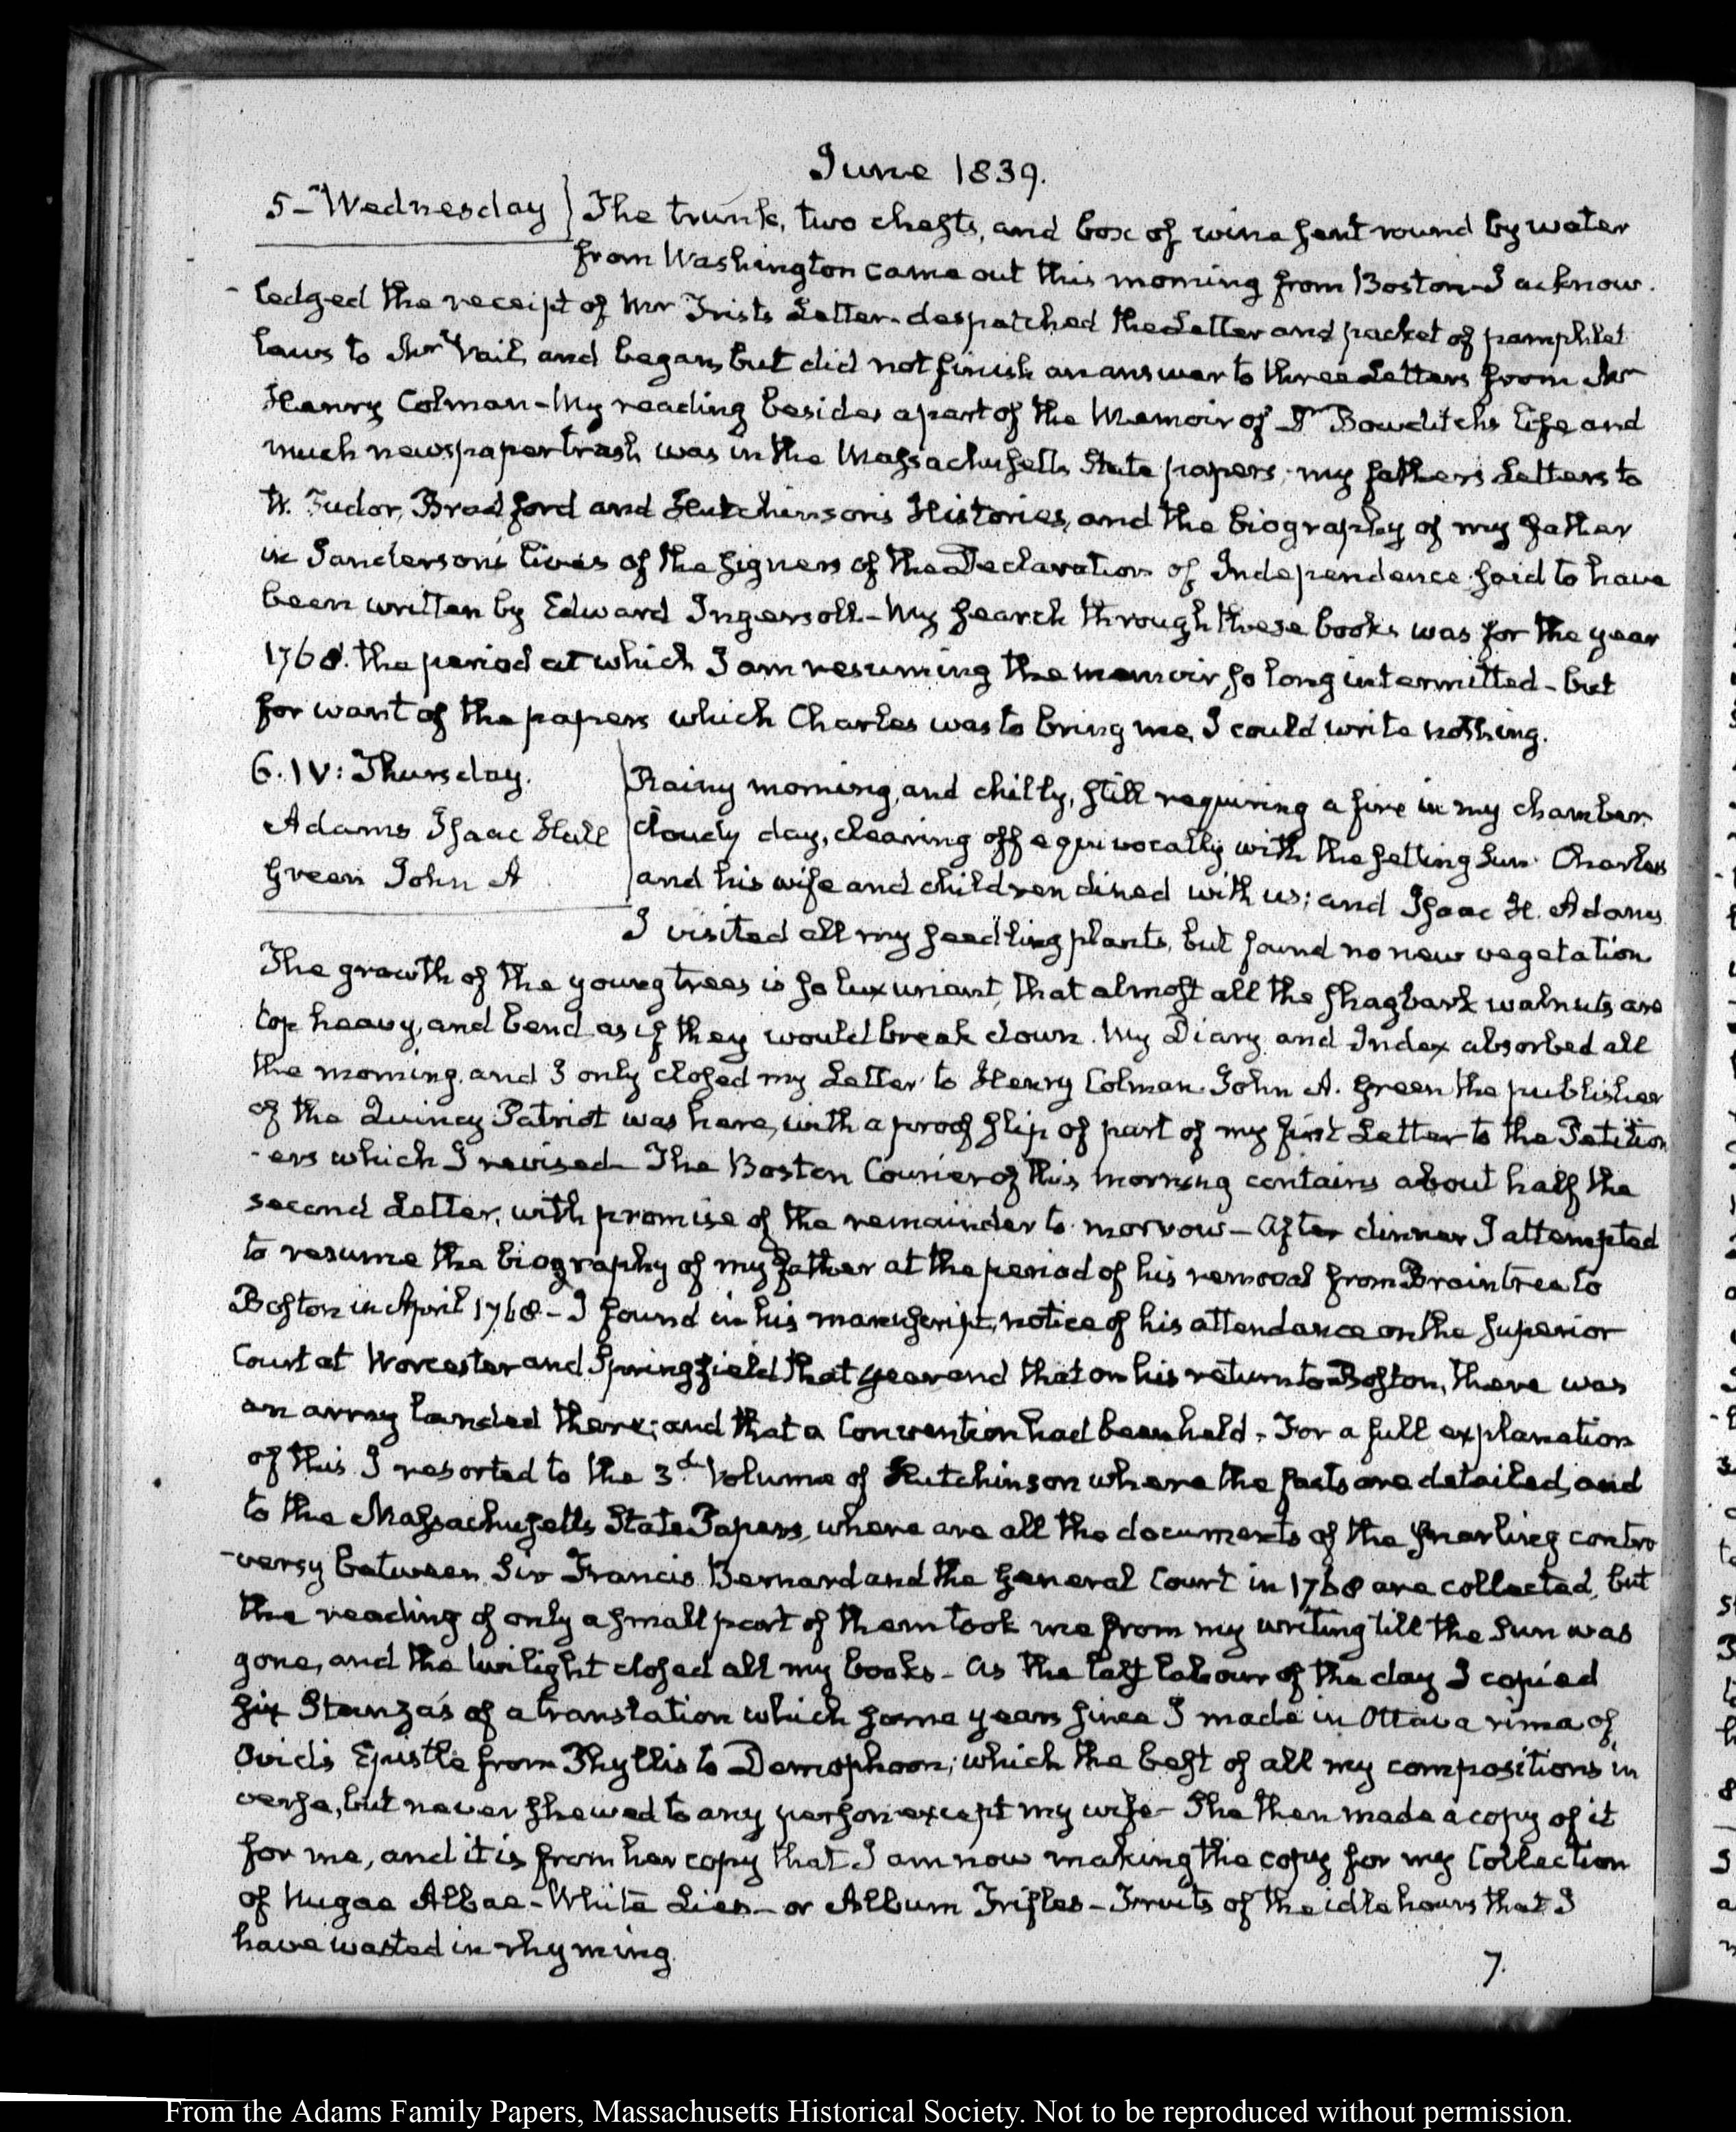 June 1839.
5 - Wednesday } The trunk, two chests, and box of wine sent round by water
from Washington came out this morning from Boston - I acknow-
-ledged the receipt of Mr Trist's Letter - despatched the Letter and packet of pamphlet
laws to Mr Vail, and began, but did not finish an answer to three Letters from Mr
Henry Colman - My reading besides a part of the Memoir of Dr Bowditch's life and
much newspaper trash was in the Massachusetts State papers; my father's Letters to
W. Tudor, Bradford and Hutchinson's Histories, and the biography of my father
in Sanderson's lives of the signers of the Declaration of Independence said to have
been written by Edward Ingersoll - My search through these books was for the year
1768. the period at which I am resuming the memoir so long intermitted - but
for want of the papers which Charles was to bring me, I could write nothing.
6. IV: Thursday.
Adams Isaac Hull
Green John A
Rainy morning, and chilly, still requiring a fire in my chamber.
cloudy day, clearing off equivocally with the setting Sun. Charles
and his wife and children dined with us; and Isaac H. Adams
I visited all my seedling plants, but found no new vegetation
The growth of the young trees is so luxuriant, that almost all the shagbark walnuts are
top heavy, and bend as if they would break down. My Diary and Index absorbed all
the morning, and I only closed my Letter to Henry Colman. John A. Green the publisher
of the Quincy Patriot was here, with a proof slip of part of my first Letter to the Petition
-ers which I revised - The Boston Courier of this morning contains about half the
second Letter, with promise of the remainder to-morrow - After dinner I attempted
to resume the biography of my father at the period of his removal from Braintree to
Boston in April 1768 - I found in his manuscript, notice of his attendance on the Superior
Court at Worcester and Springfield that year and that on his return to Boston, there was
an army landed there; and that a Convention had been held - For a full explanation
of this I resorted to the 3d Volume of Hutchinson where the facts are detailed, and
to the Massachusetts State Papers, where are all the documents of the snarling contro
-versy between Sir Francis Bernard and the General Court in 1768 are collected, but
the reading of only a small part of them took me from my writing till the Sun was
gone, and the twilight closed all my books - As the last labour of the day I copied
six Stanza's of a translation which some years since I made in Ottava rima of
Ovid's Epistle from Phyllis to Demophoon; which the best of all my compositions in
verse, but never shewed to any person except my wife - She then made a copy of it
for me, and it is from her copy that I am now making the copy for my Collection
of Nugae Albae - White Lies - or Album Trifles - Fruits of the idle hours that I
have wasted in rhyming.
7.
From the Adams Family Papers, Massachusetts Historical Society. Not to be reproduced without permission.